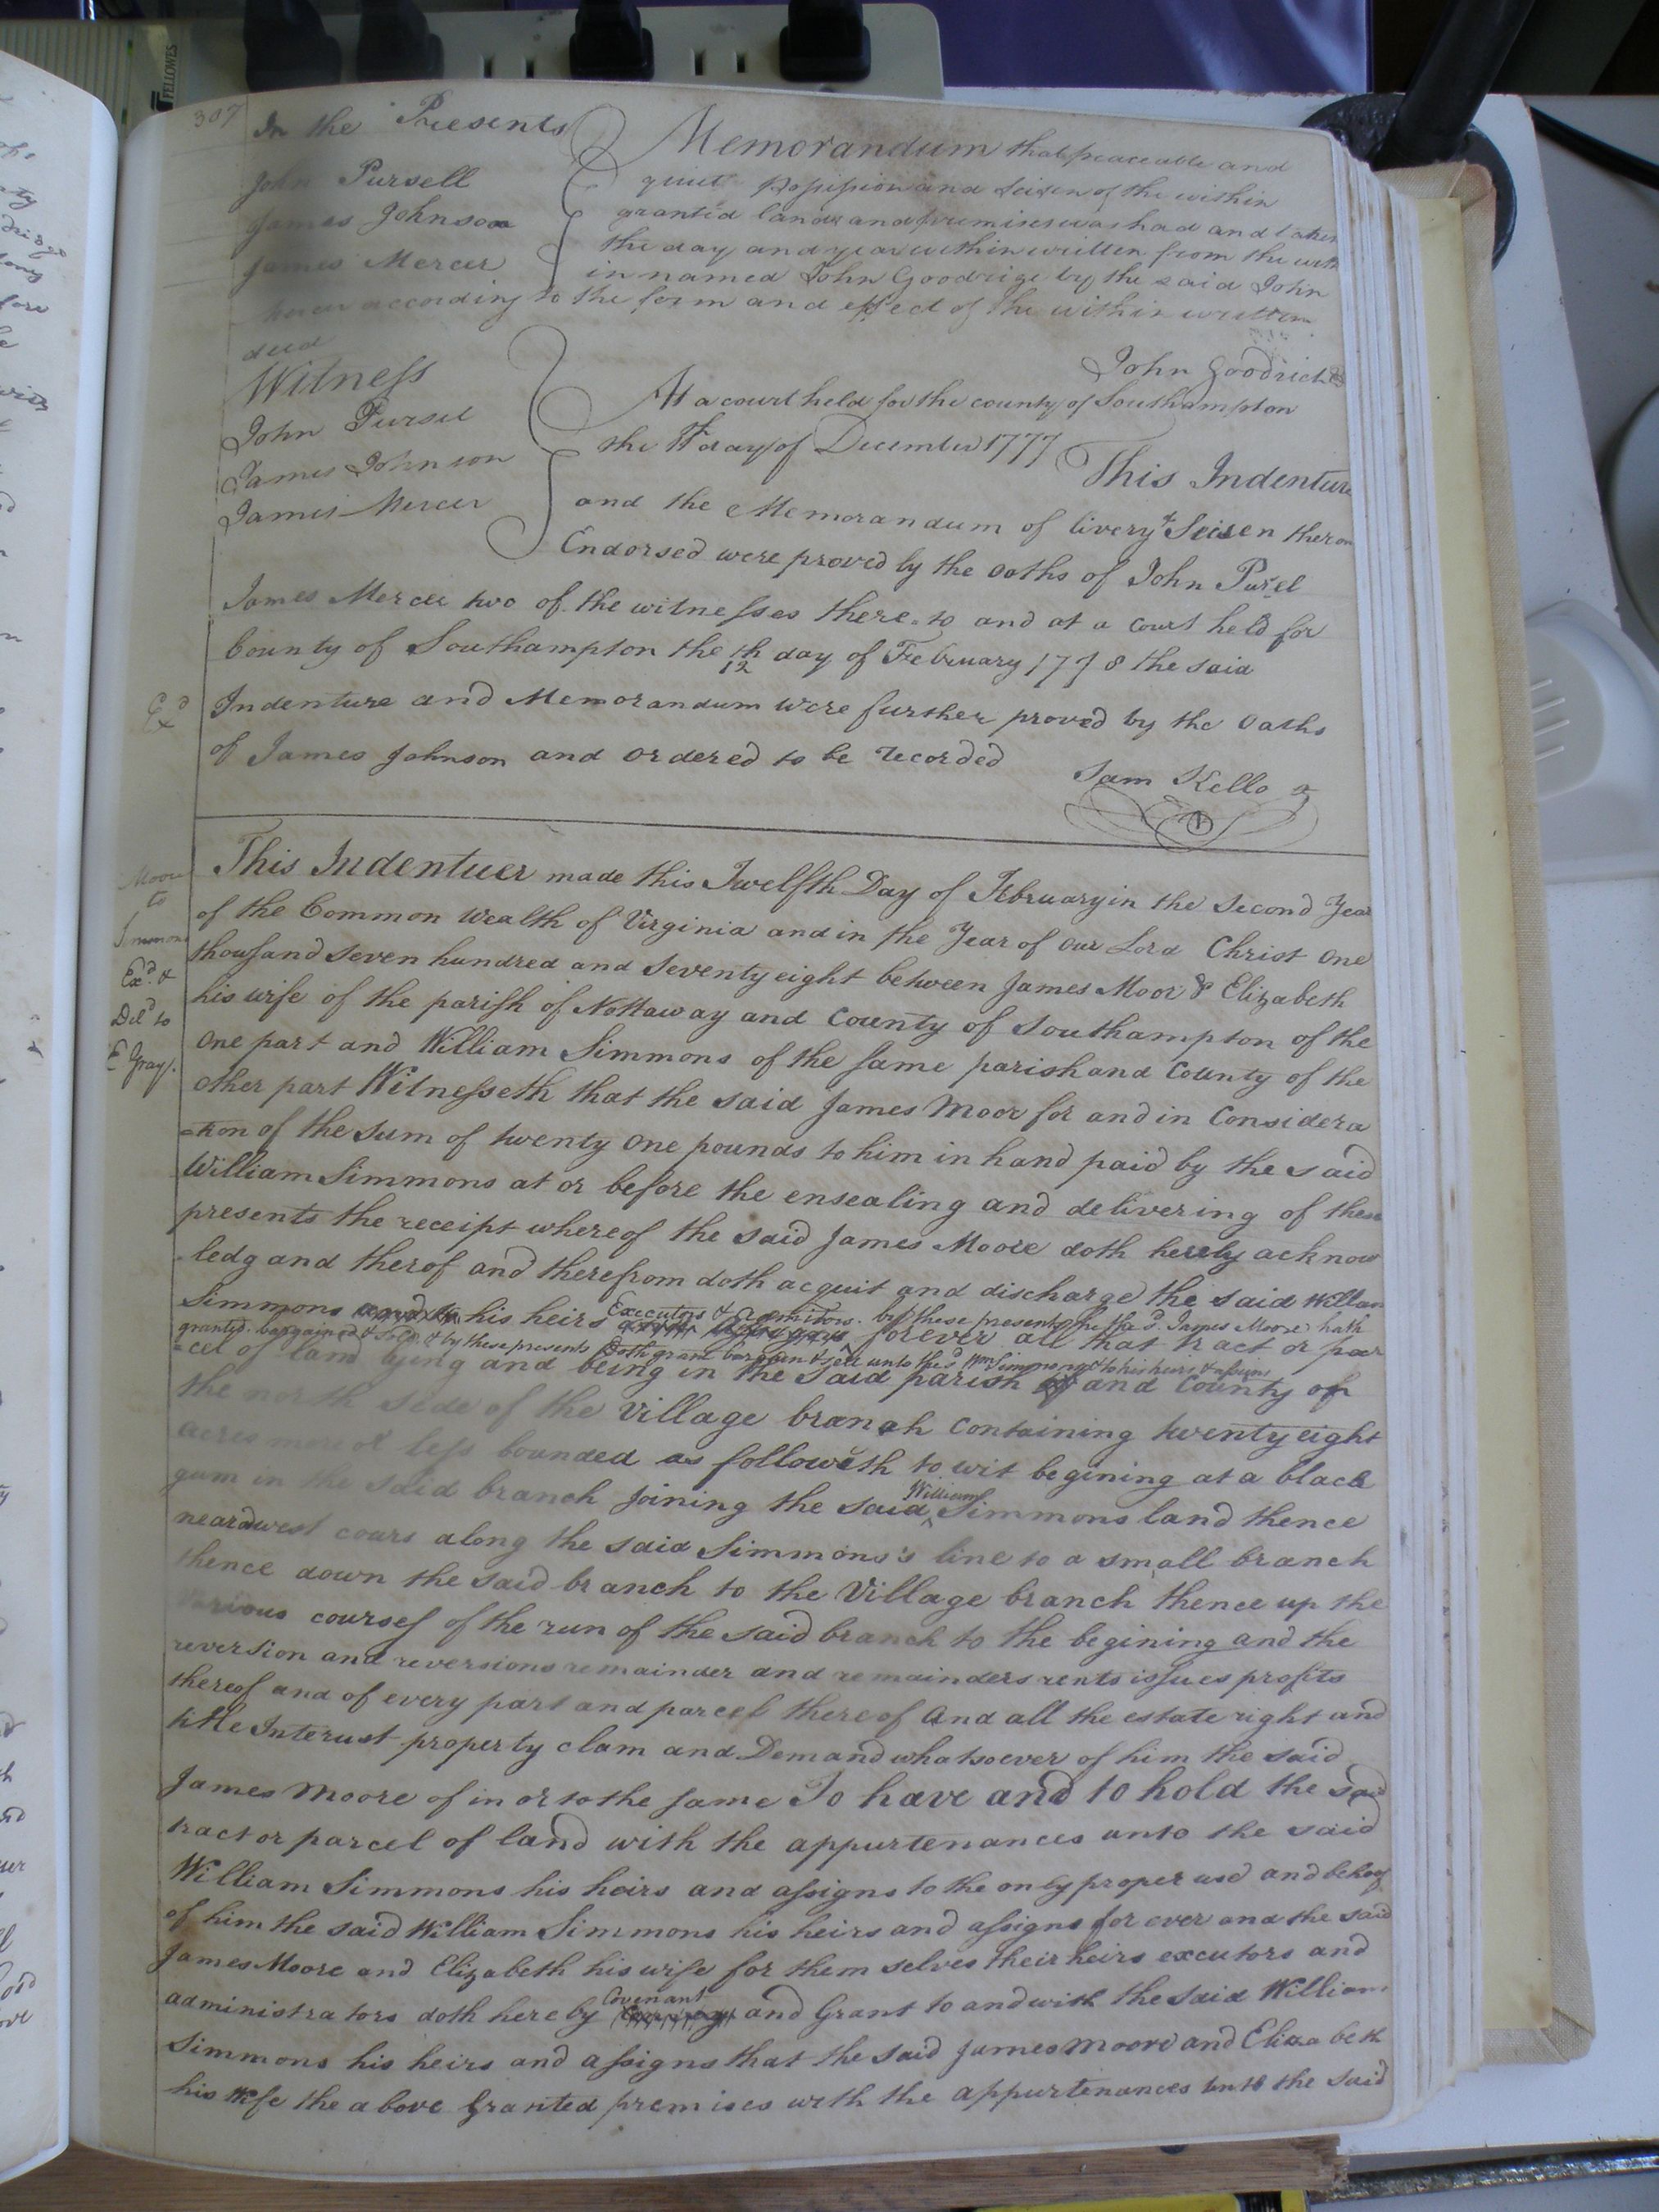 FELLOWES
307
In the Presents
John Pursell
James Johnson
James Mercer
Memorandum that peaceable and
quiet Possession and Seisen of the within
granted lands and premises was had and taken
the day and year within written from the with
in named John Goodrige by the said John
according to the form and effect of the within written
deed
John Goodrich
Witness
John Pursel
James Johnson
James Mercer
At a court held for the county of Southampton
the day of December 1777 This Indenture
and the Memorandum of livery & Seisen theron
Endorsed were proved by the oaths of John Pursel
James Mercer two of the witnesses there to and at a Court held for
County of Southampton the 12th day of February 1778 the said
Exd
Indenture and Memorandum were further proved by the Oaths
of James Johnson and ordered to be recorded
Sam Kello
Moore
to
Simmons
Exd. &
Deld to
E Gray.
This Indentuer made this Twelfth Day of February in the Second Year
of the Common Wealth of Virginia and in the Year of our Lord Christ One
thousand seven hundred and Seventy eight between James Moor & Elizabeth
his wife of the parish of Nottaway and County of Southampton of the
One part and William Simmons of the same parish and County of the
other part Witnesseth that the said James Moor for and in Considera
=tion of the Sum of twenty One pounds to him in hand paid by the said
William Simmons at or before the ensealing and delivering of these
presents the receipt whereof the said James Moore doth hereby acknow
-ledg and therof and therefrom doth acquit and discharge the said William
Simmons his heirs Executors & Admitors. by these presents he the sd. James Moore hath
granted. bargained & Sold & by these presents Doth grant bargain & sell unto the sd Wm Simmons & to his heirs & assigns
forever all that tract or par
=cel of land lying and being in the said parish and County on
the north side of the Village branch Containing twenty eight
acres more or less bounded as followeth to wit begining at a black
gum in the said branch joining the said William Simmons land thence
near a west cours along the said Simmons's line to a small branch
thence down the said branch to the Village branch thence up the
Various courses of the run of the said branch to the begining and the
reversion and reversions remainder and remainders rents issues profits
thereof and of every part and parcel thereof And all the estate right and
title Interust property clam and Demand whatsoever of him the said
James Moore of in or to the same To have and to hold the said
tract or parcel of land with the appurtenances unto the said
William Simmons his heirs and assigns to the only proper use and behoof
of him the said William Simmons his heirs and assigns for ever and the said
James Moore and Elizabeth his wife for them selves their heirs excutors and
administrators doth hereby Covenant and Grant to and with the said William
Simmons his heirs and assigns that the said James Moore and Elizabeth
his Wife the above Granted premises with the appurtenances unto the said